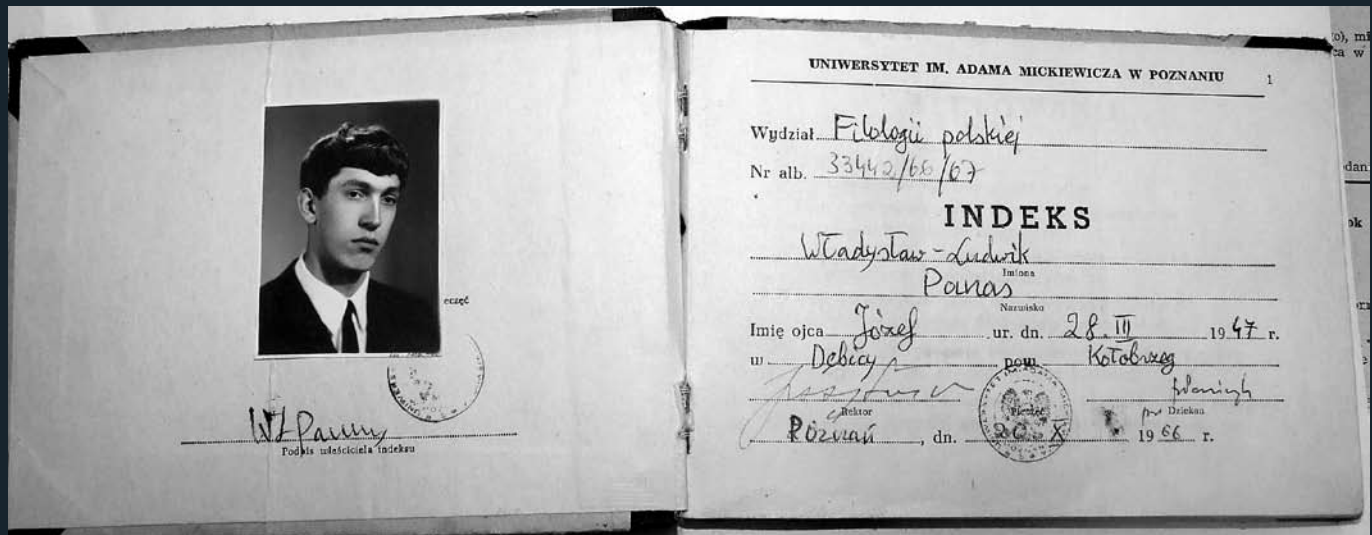 eczęć
Wł Panas
Podpis właściciela indeksu
UNIWERSYTET IM. ADAMA MICKIEWICZA W POZNANIU 1
Wydział Filologii polskiej
Nr alb. 33442/66/67
INDEKS
Władysław-Ludwik
Imiona
Panas
Nazwisko
Imię ojca Józef ur. dn. 28. III 1947 r.
w Dębicy pow. Kołobrzeg
Rektor Pieczęć Dziekan
Poznań, dn. X 1966 r.
o), mi
ca w
dan
ok